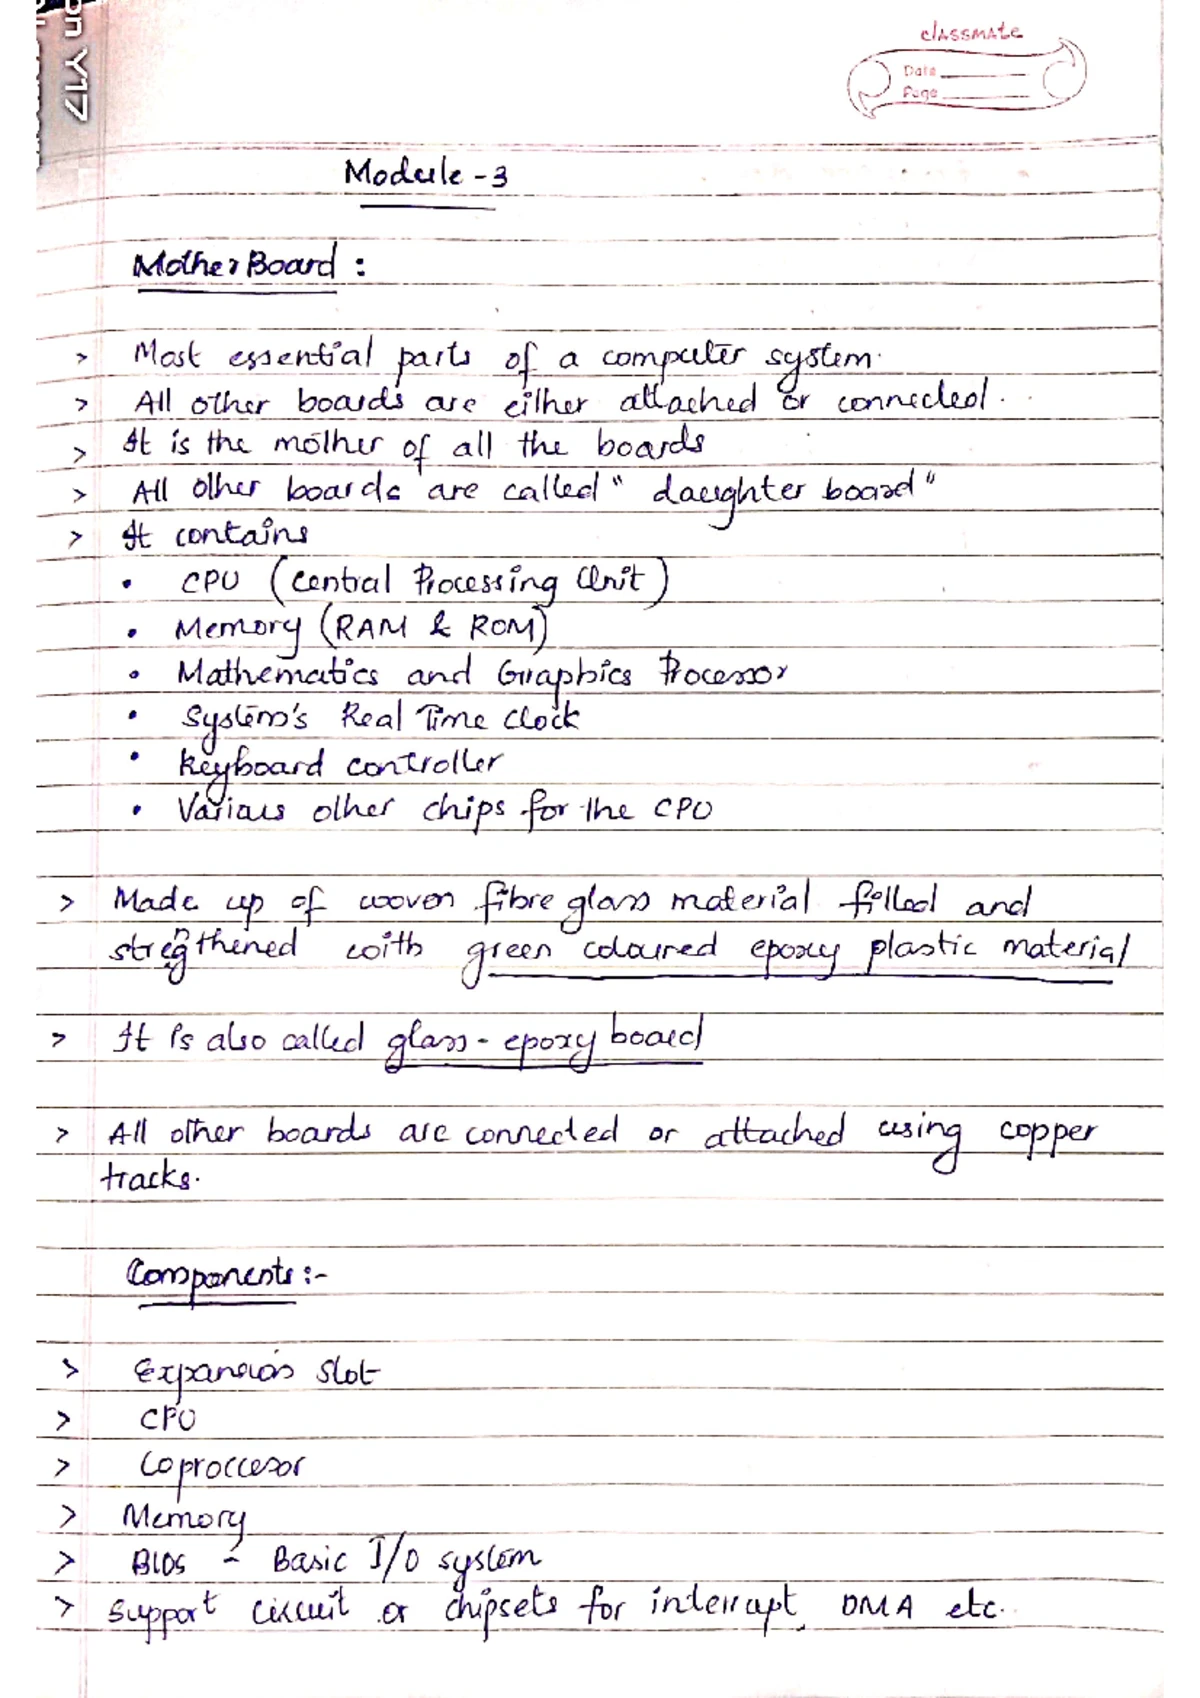 on Y17
classmate
Date
Page
Module - 3
MotherBoard :
> Most essential parts of a computer system.
> All other boards are either attached or connected.
> It is the mother of all the boards
> All other boards are called " daughter board "
> It contains
• CPU (Central Processing Unit)
• Memory (RAM & ROM)
• Mathematics and Graphics Processor
• System's Real Time clock
• Keyboard controller
• Various other chips for the CPU
> Made up of woven fibre glass material filled and
strengthened with green coloured epoxy plastic material
> It is also called glass - epoxy board
> All other boards are connected or attached using copper
tracks.
Components :-
> Expansion slot
> CPU
> Coproccesor
> Memory
> BIOS - Basic I/O system
> Support circuit or chipsets for interrupt, DMA etc.